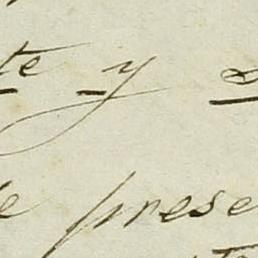 te y
e prese